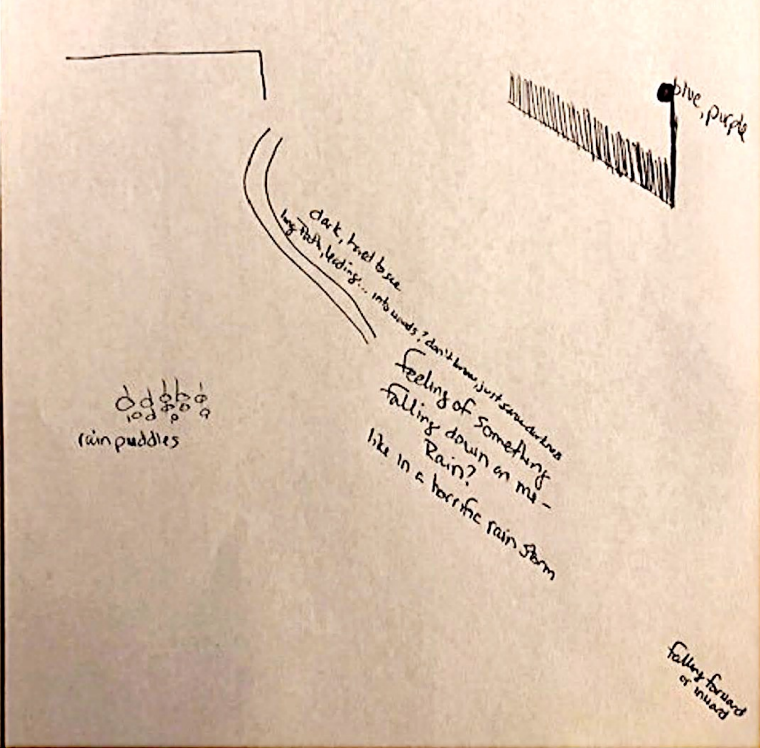 blue, purple
dark, hard to see
long path, leading... into woods? don't know, just saw darkness
feeling of something
falling down on me -
Rain?
like in a horrific rain storm
rain puddles
falling forward
or inward